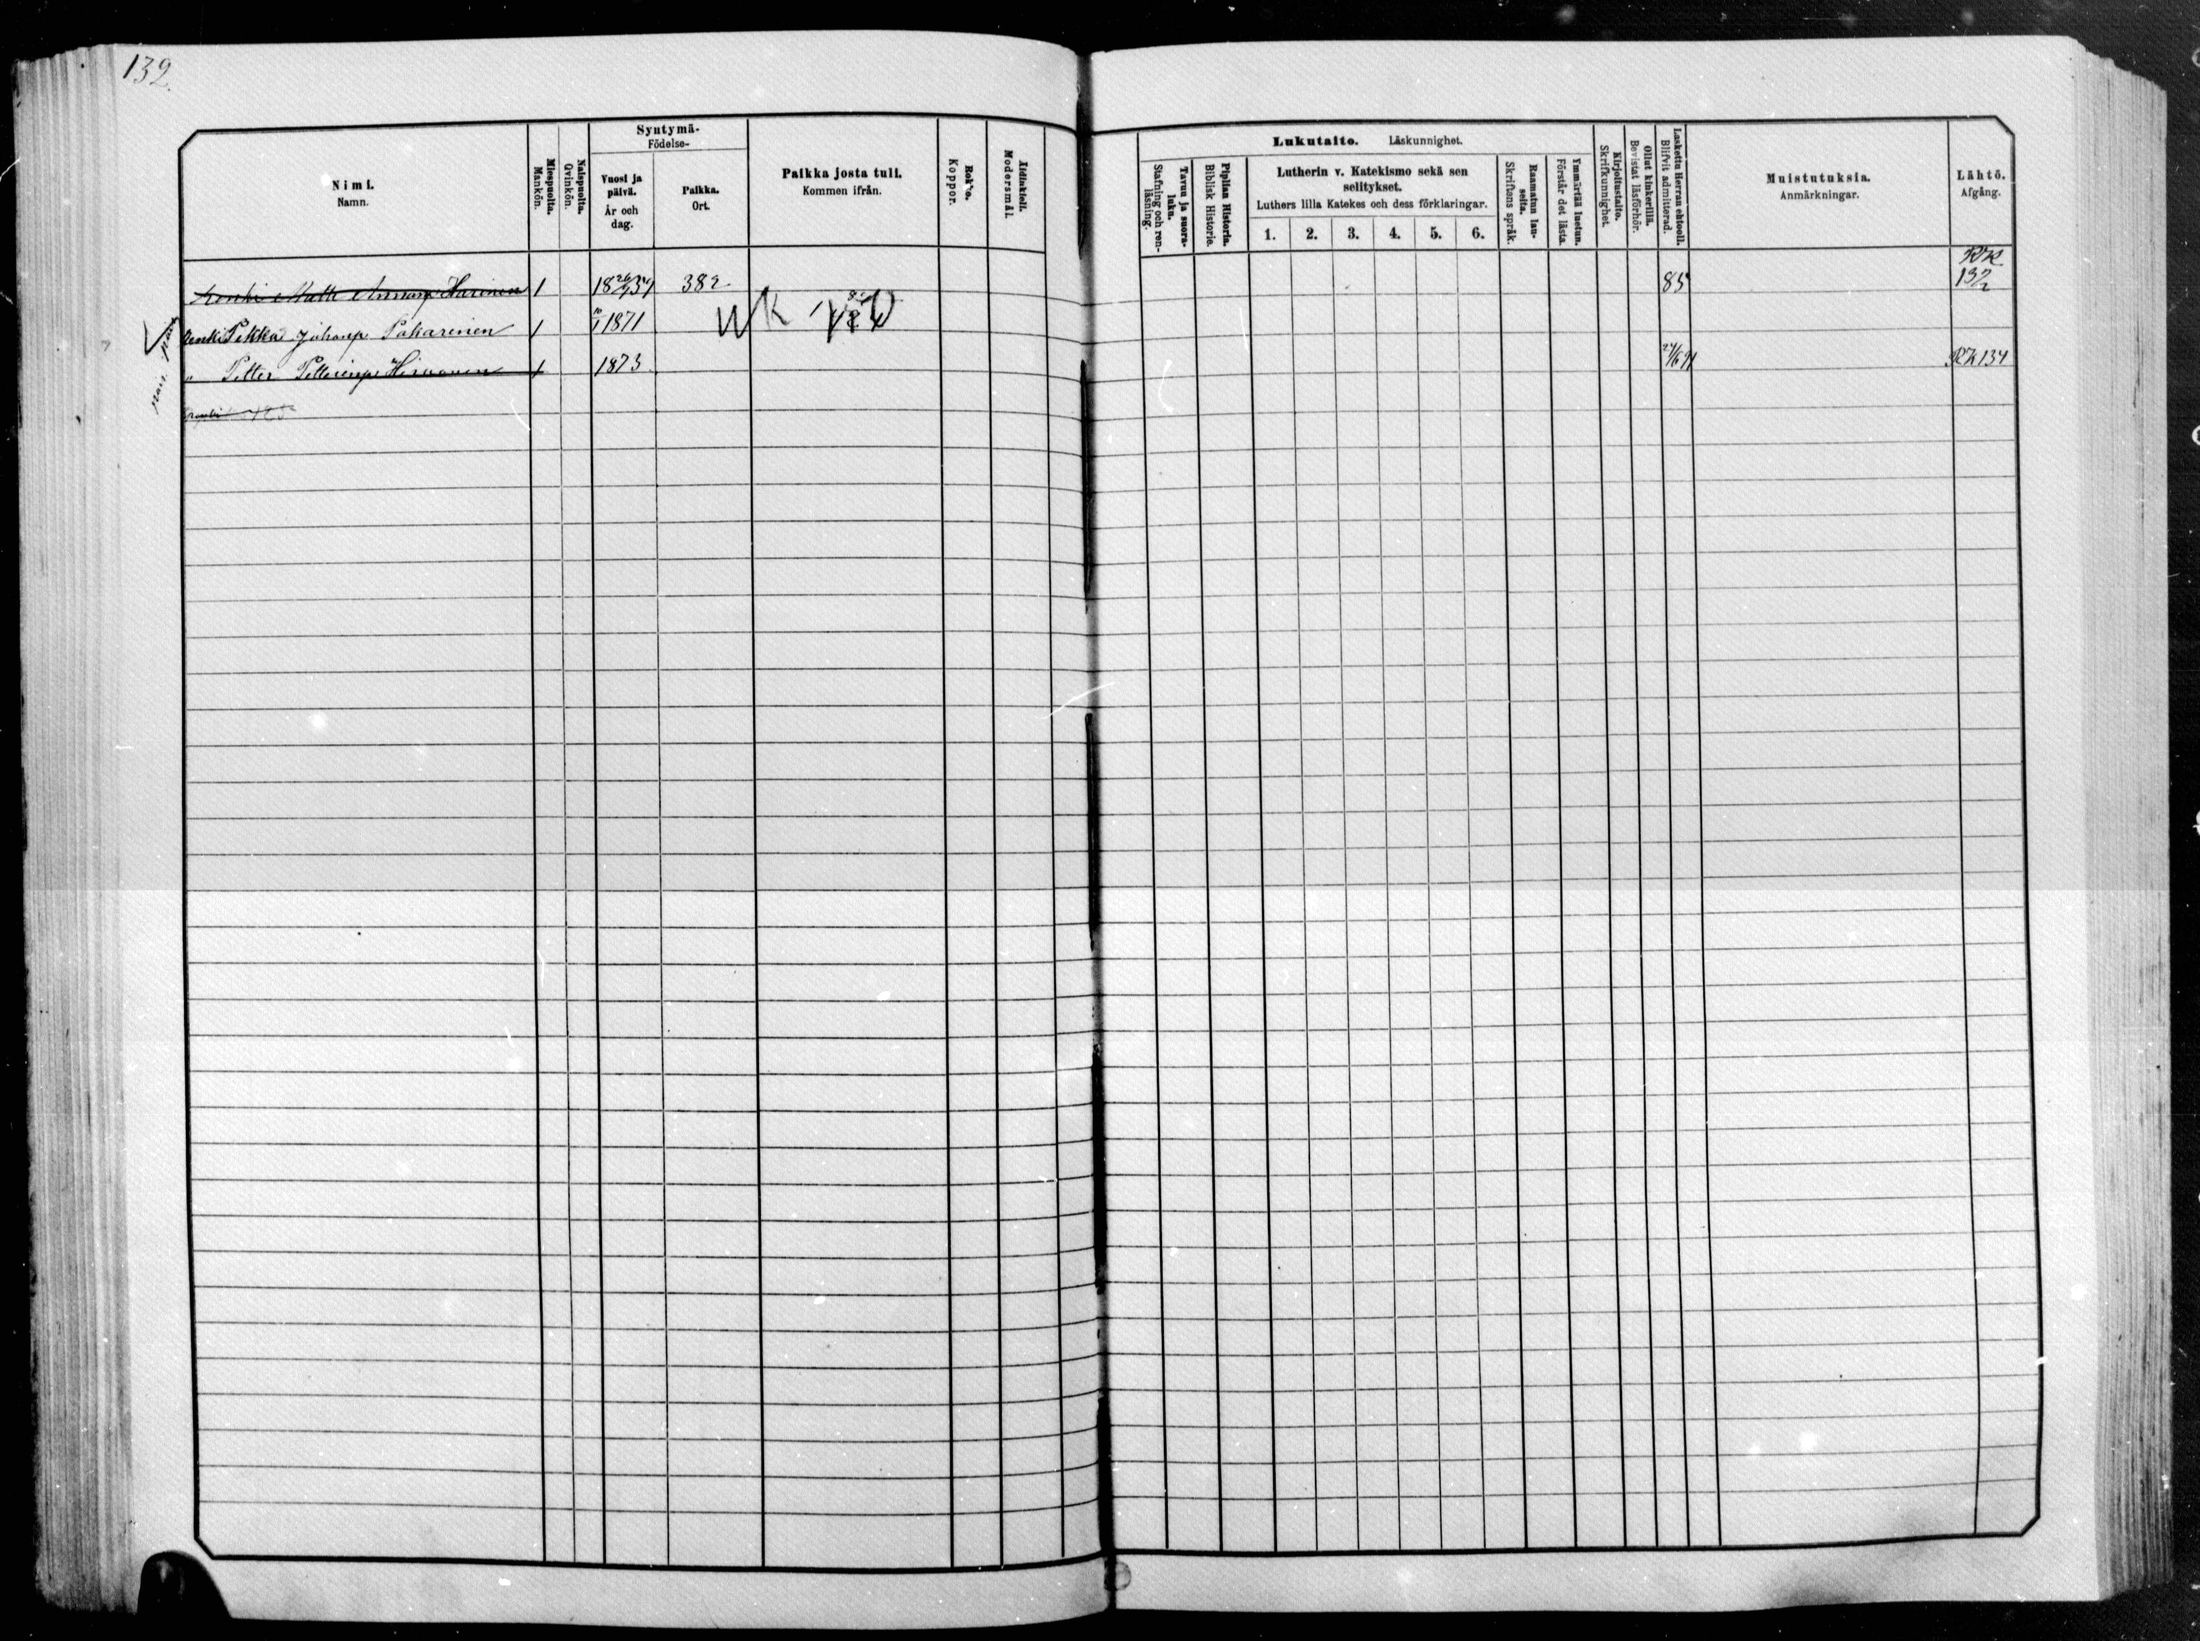 132.
Nimi.
Namn.
Miespuolta.
Mankön.
Naispuolta.
Qvinkön.
Syntymä-
Födelse-
Vuosi ja päivä.
År och dag.
Paikka.
Ort.
Paikka josta tuli.
Kommen ifrån.
Rok'o.
Koppor.
Äidinkieli.
Modersmål.
Lukutaito. Läskunnighet.
Tavuu ja suora-luku.
Stafning och ren-läsning.
Piplian Historia.
Biblisk Historie.
Lutherin v. Katekismo sekä sen
selitykset.
Luthers lilla Katekes och dess förklaringar.
1. 2. 3. 4. 5. 6.
Raamatun lau-seita.
Skriftens språk.
Ymmärtää luetun.
Förstår det lästa.
Kirjoitustaito.
Skrifkunnighet.
Ollut kinkerillä.
Bevistat läsförhör.
Laskettu Herran ehtooll.
Blifvit admitterad.
Muistutuksia.
Anmärkningar.
Lähtö.
Afgång.
Renki Matti Harinen 1 382 85 RK 132
Renki Pekka Juhonp Paharinen 1 1871 WK
" Petter Hirvonen 1 1873 24/6 91 RK 134